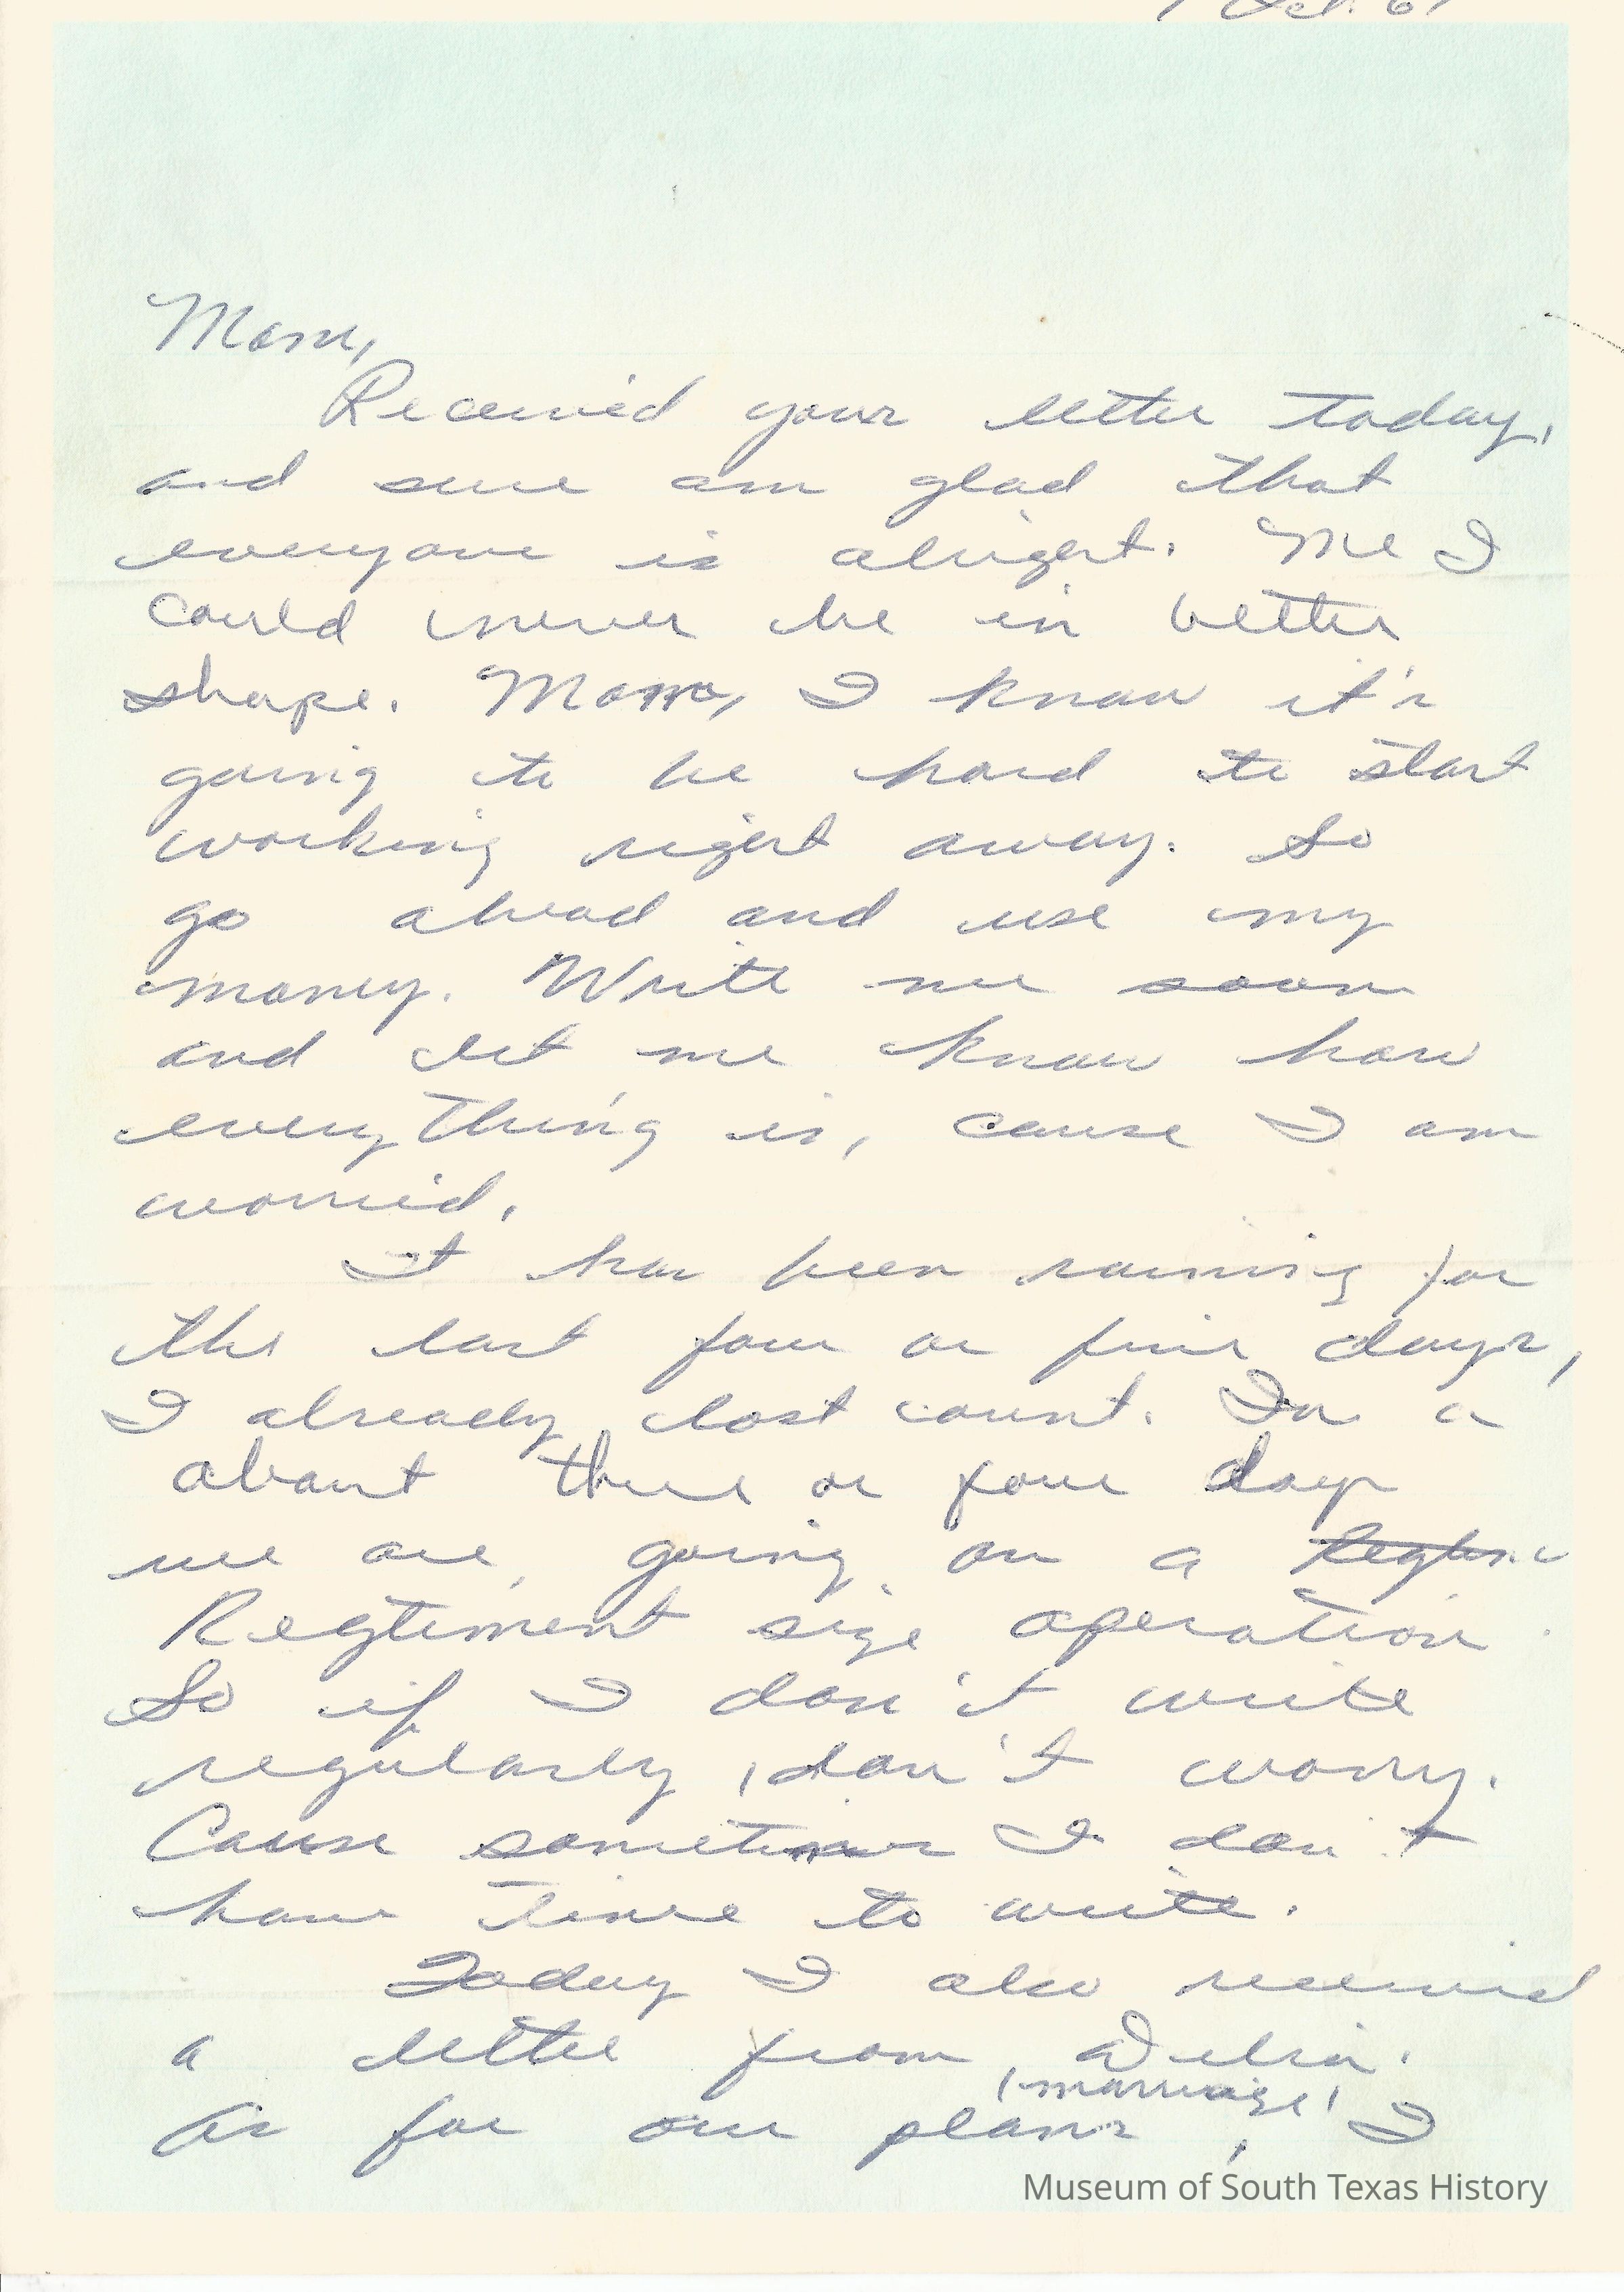 Oct.
Mom,
Received your letter today,
and sure am glad that
everyone is alright. Me I
could never be in better
shape. Mom, I know it's
going to be hard to start
working right away. So
go ahead and use my
money. Write me soon
and let me know how
everything is, cause I am
worried.
It has been raining for
the last four or five days,
I already lost count. In a
about three or four days
we are going on a
Regtiment size operation
So if I don't write
regularly, don't worry.
Cause sometimes I don't
have time to write.
Today I also received
a letter from Delia.
(marriage)
As for our plans, I
Museum of South Texas History